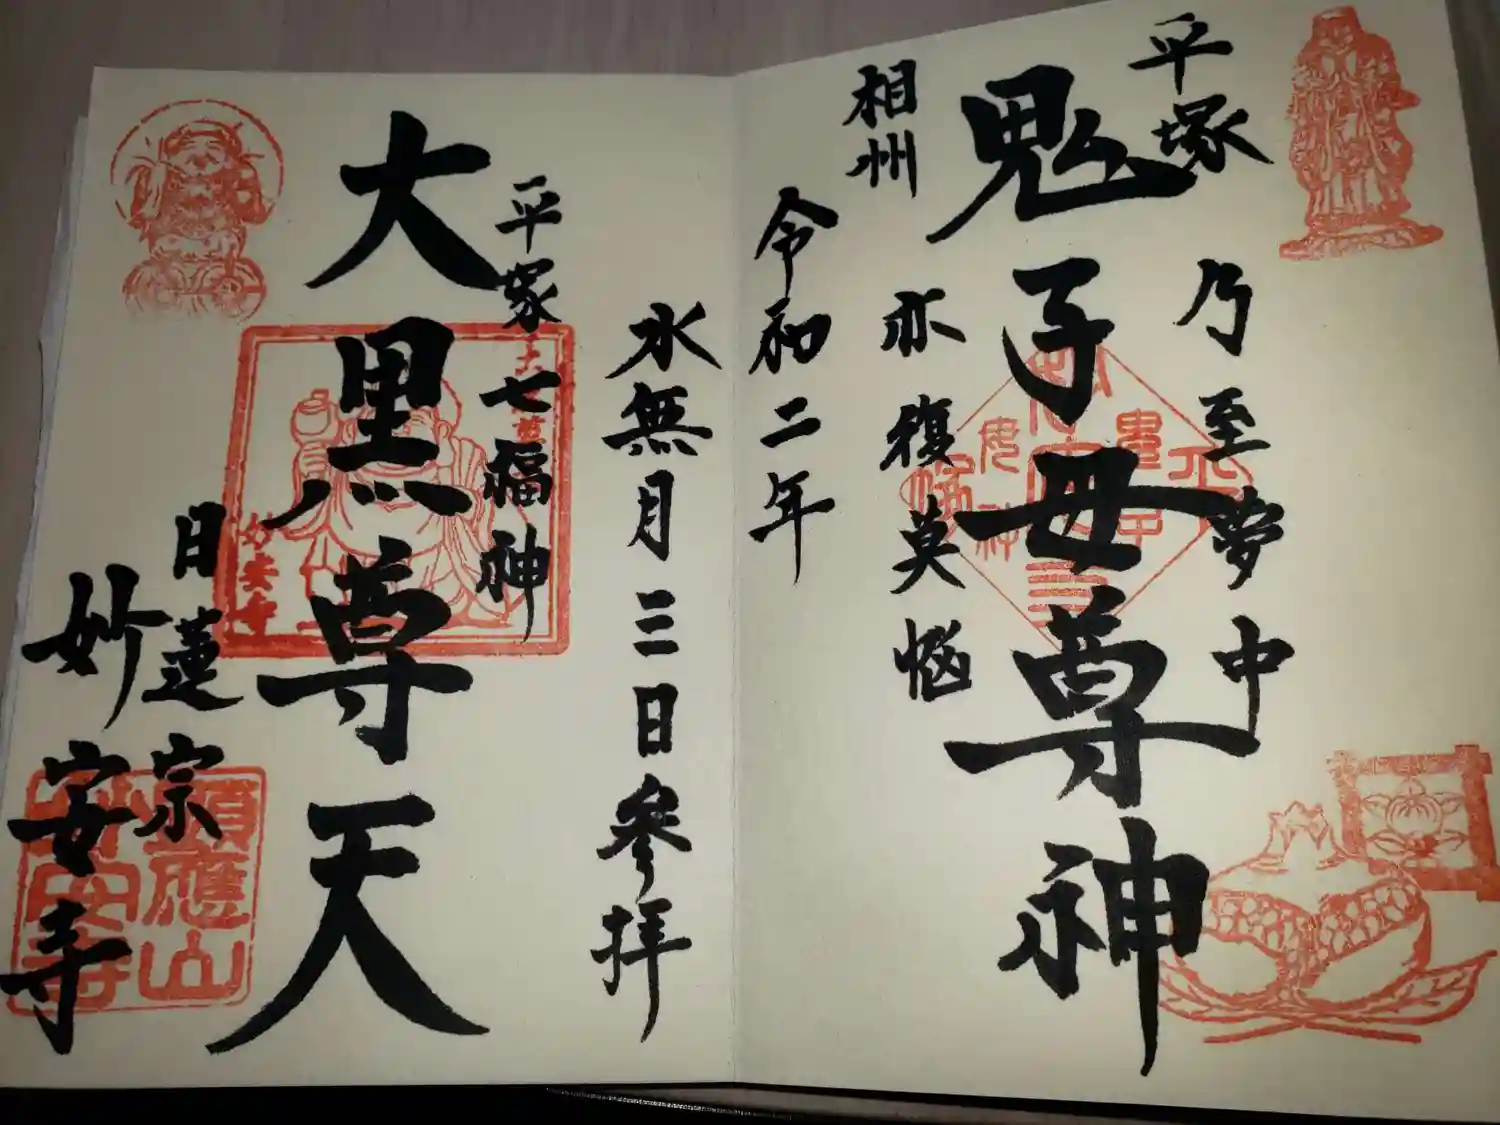 平塚
乃至夢中
鬼子母尊神
相州
亦復莫悩
令和二年
水無月三日参拝
平塚七福神
大黒尊天
日蓮宗
妙安寺
妙安寺
顕應山
妙安寺